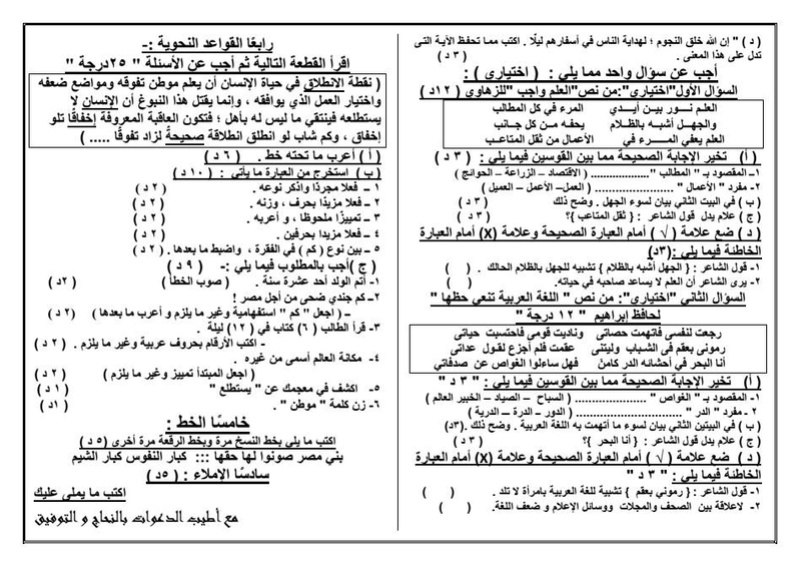 ( د ) " إن الله خلق النجوم ؛ لهداية الناس في أسفارهم ليلًا . اكتب مما تحفظ الآية التى
تدل على هذا المعنى . ( ٣ د )
أجب عن سؤال واحد مما يلي : ( اختياري ) :
السؤال الأول"اختياري":من نص"العلم واجب "للزهاوي ( ١٢د )
العلم نـــور بين أيـــدي المرء في كل المطالب
والجهـــل أشبه بالظـــلام يحفه مــن كل جـــانب
العلم يعفي المـــرء في الأعمال من ثقل المتاعب
( أ ) تخير الإجابة الصحيحة مما بين القوسين فيما يلي : ( ٣ د )
١- المقصود بـ " المطالب ".................. ( الاقتصاد – الزراعة – الحوائج )
٢- مفرد " الأعمال " ........................ ( العمل– الأعمل – العميل )
( ب ) في البيت الثاني بيان لسوء الجهل . وضح ذلك ( ٣ د )
( ج ) علام يدل قول الشاعر : { ثقل المتاعب }؟ ( ٣ د )
( د ) ضع علامة ( √ ) أمام العبارة الصحيحة وعلامة (X) أمام العبارة
الخاطئة فيما يلي:(٣د)
١- قول الشاعر : { الجهل أشبه بالظلام } تشبيه للجهل بالظلام الحالك . ( )
٢- يرى الشاعر أن العلم لا يساعد صاحبه في حياته. ( )
السؤال الثاني "اختياري": من نص " اللغة العربية تنعي حظها "
لحافظ إبراهيم " ١٢ درجة "
رجعت لنفسي فاتهمت حصاتي وناديت قومي فاحتسبت حياتي
رموني بعقم في الشباب وليتني عقمت فلم أجزع لقول عداتي
أنا البحر في أحشائه الدر كامن فهل ساءلوا الغواص عن صدفاتي
( أ ) تخير الإجابة الصحيحة مما بين القوسين فيما يلي : " ٣ د "
١- المقصود بـ " الغواص " .................. ( السباح – الصياد – الخبير العالم )
٢ - مفرد " الدر " ........................ ( الدور – الدرة – الدرية )
( ب ) في البيتين الثاني بيان لسوء ما أتهمت به اللغة العربية . وضح ذلك .(٣د)
( ج ) علام يدل قول الشاعر : { أنا البحر }؟ ( ٣ د )
( د ) ضع علامة ( √ ) أمام العبارة الصحيحة وعلامة (X) أمام العبارة
الخاطئة فيما يلي : " ٣ د "
١- قول الشاعر : { رموني بعقم } تشبية للغة العربية بامرأة لا تلد . ( )
٢- لاعلاقة بين الصحف والمجلات ووسائل الإعلام و ضعف اللغة. ( )
رابعًا القواعد النحوية :-
اقرأ القطعة التالية ثم أجب عن الأسئلة " ٢٥درجة "
( نقطة الانطلاق في حياة الإنسان أن يعلم موطن تفوقه ومواضع ضعفه
واختيار العمل الذي يوافقه ، وإنما يقتل هذا النبوغُ أن الإنسان لا
يستطلعه فينتقي ما ليس له بأهل ؛ فتكون العاقبة المعروفة إخفاقًا تلو
إخفاق ، وكم شاب لو انطلق انطلاقة صحيحةً لزاد تفوقًا ..... )
( أ ) أعرب ما تحته خط . ( ٦ د )
( ب ) استخرج من العبارة ما يأتي : ( ١٠ د )
١ – فعلا مجردًا واذكر نوعه . ( ٢ د )
٢ – فعلا مزيدًا بحرف ، وزنه . ( ٢ د )
٣ – تمييزًا ملحوظا ، و أعربه . ( ٢ د )
٤ – فعلا مزيدا بحرفين . ( ٢ د )
٥ – بين نوع ( كم ) في الفقرة ، واضبط ما بعدها . ( ٢ د )
( ج )أجب بالمطلوب فيما يلي :- ( ٩ د )
١- أتم الولد أحد عشرة سنة . ( صوب الخطأ ) ( ٢د )
٢– كم جندي ضحى من أجل مصر !
– ( اجعل " كم " استفهامية وغير ما يلزم و أعرب ما بعدها ) ( ٢د )
٣- قرأ الطالب ( ٦ ) كتاب في ( ١٢ ) ليلة .
- اكتب الأرقام بحروف عربية وغير ما يلزم . ( ٢ د )
٤- مكانة العالم أسمى من غيره .
( اجعل المبتدأ تمييز وغير ما يلزم ) ( ٢ د )
٥- اكشف في معجمك عن " يستطلع " ( ١ د )
٦- زن كلمة " موطن " . ( ١د )
خامسًا الخط :
اكتب ما يلى بخط النسخ مرة وبخط الرقعة مرة أخرى (٥ د )
بني مصر صونوا لها حقها ::: كبار النفوس كبار الشيم
سادسًا الإملاء : ( ٥د )
اكتب ما يملى عليك
مع أطيب الدعوات بالنجاح و التوفيق